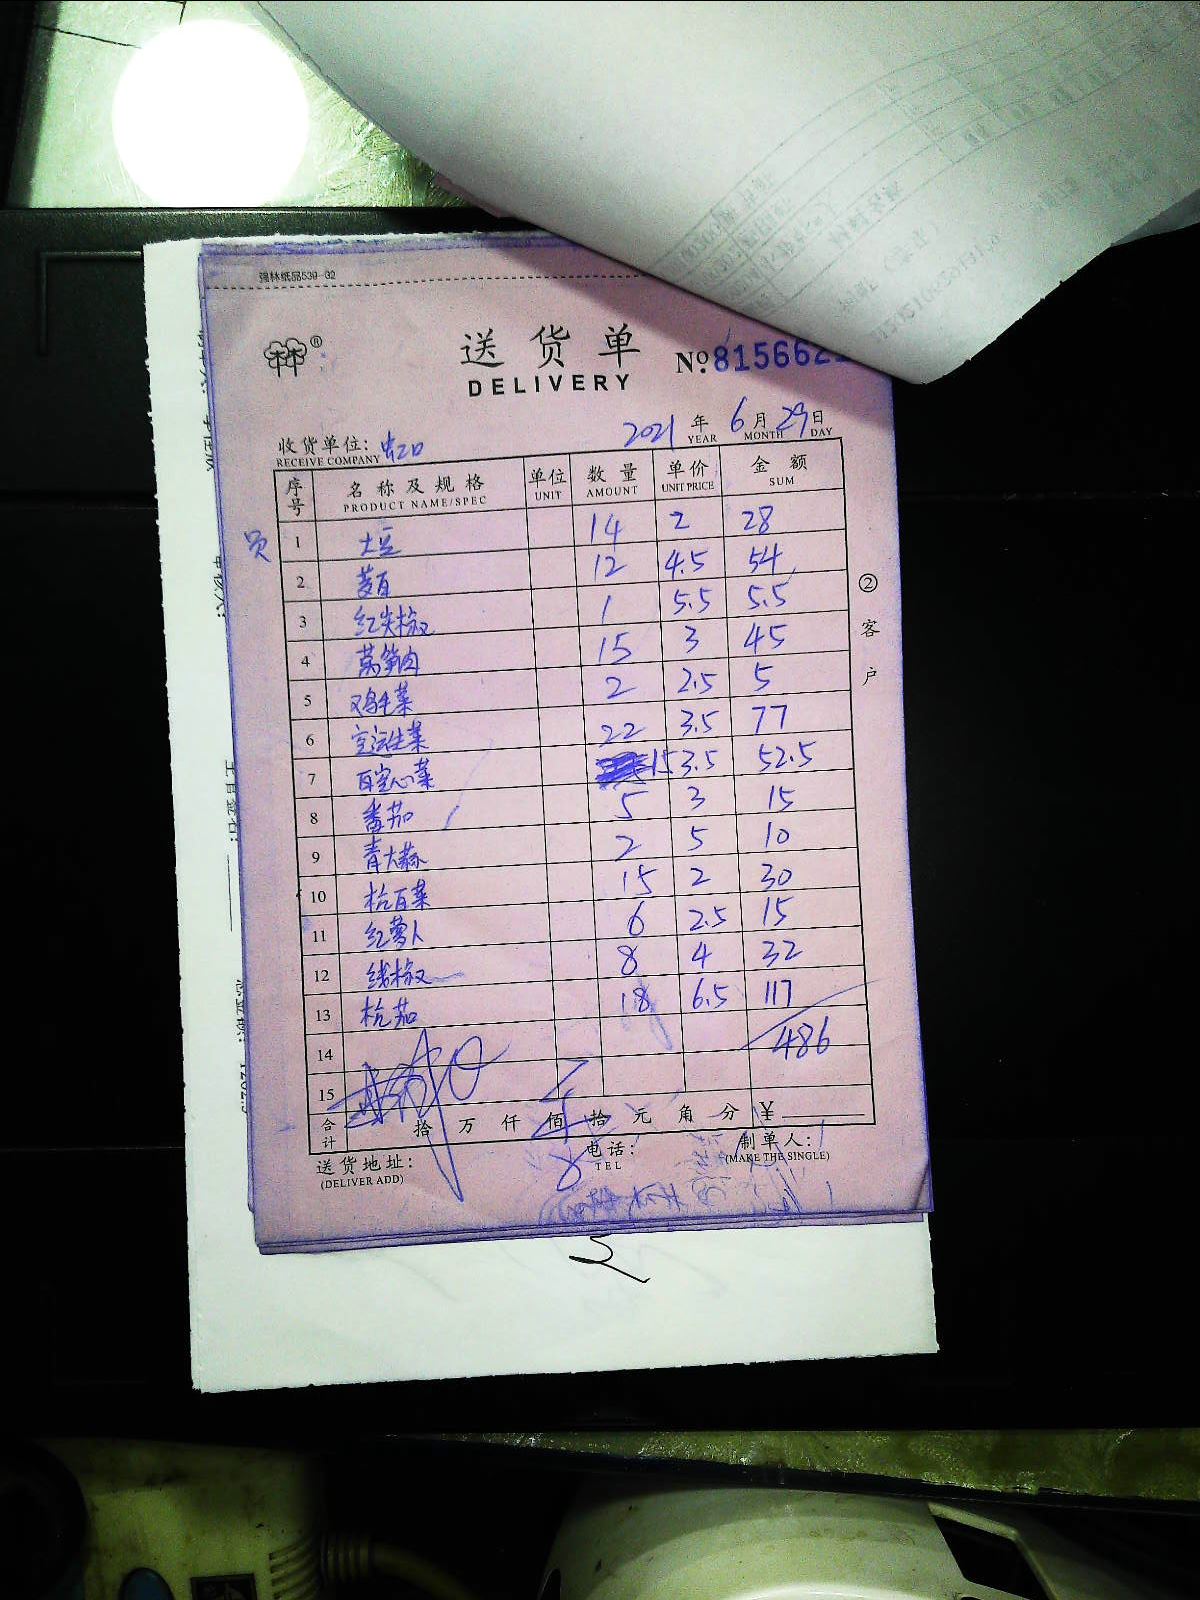 强林纸品539-32
®
送货单
DELIVERY
№:815662
2021年6月29日
YEAR MONTH DAY
收货单位:虹口
RECEIVE COMPANY
序号 名称及规格 单位 数量 单价 金额
PRODUCT NAME/SPEC UNIT AMOUNT UNIT PRICE SUM
员
1 土豆 14 2 28
2 茭白 12 4.5 54
3 红尖椒 1 5.5 5.5
4 莴笋肉 15 3 45
5 鸡毛菜 2 2.5 5
6 空运生菜 22 3.5 77
7 百空心菜 15 3.5 52.5
8 番茄 5 3 15
9 青大蒜 2 5 10
10 杭百菜 15 2 30
11 红萝卜 6 2.5 15
12 线椒 8 4 32
13 杭茄 18 6.5 117
14 486
15
合计 拾万仟佰拾元角分 ¥
送货地址:
(DELIVER ADD)
电话:
TEL
制单人:
(MAKE THE SINGLE)
②客户